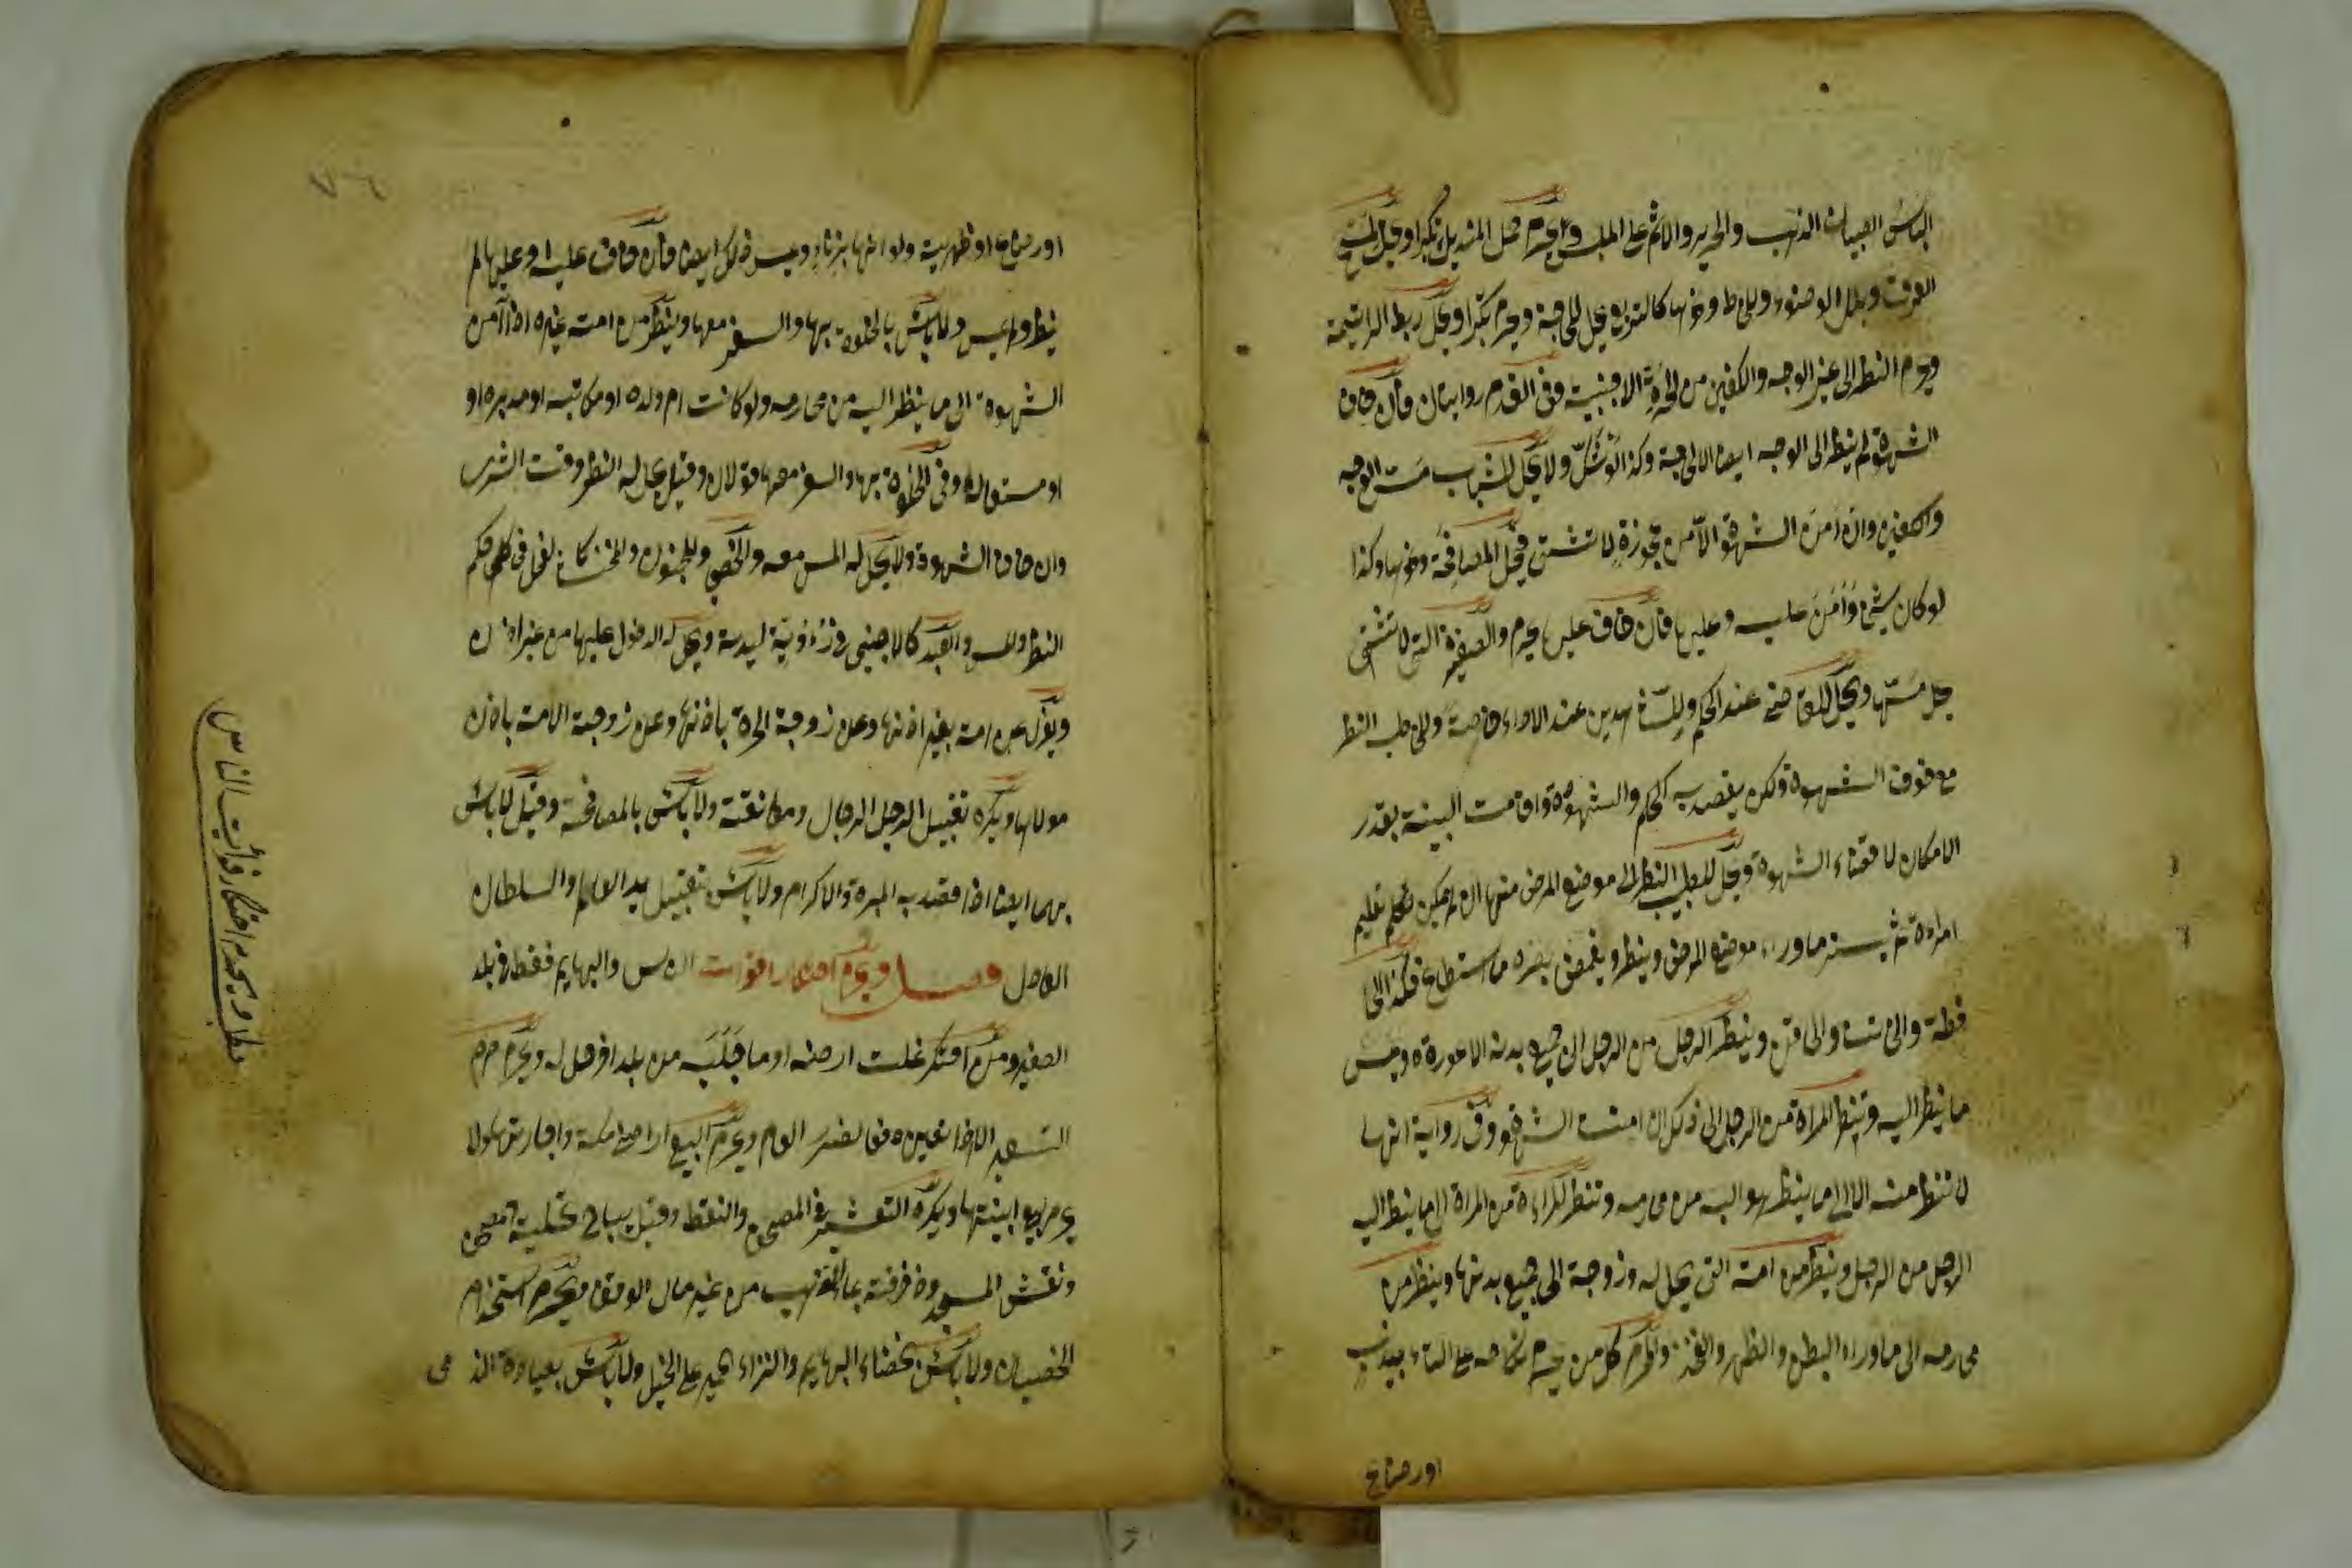 الباس الصبيان الذهب والحرير والاثم على الملبس ويحرم حمل المنديل تكبرا ويحل لمسح
العرق وبلل الوضوء وللمخاط ونحوها كالتربع يحل للحاجة ويحرم تكبرا ويحل ربط الرتيمة
ويحرم النظر الى غير الوجه والكفين من الحرة الاجنبية وفى القدم روايتان فان خاف
الشهوة لم ينظر الى الوجه ايضا الا لحاجة وكذا لو شك ولا يحل للشاب مس الوجه
والكفين وان امن الشهوة الا من عجوزة لا تشتهى فيحل المصافحة ونحوها وكذا
لو كان شيخ وامن عليه وعليها فان خاف عليها يحرم والصغيرة التى لا تشتهى
يحل مسها ويحل للقاضى عند الحكم وللشاهدين عند الاداء خاصة وللخاطب النظر
مع خوف الشهوة ولكن يقصد به الحكم والشهادة واقامت البينة بقدر
الامكان لا قضاء الشهوة ويحل للطبيب النظر الى موضع المرض منها ان لم يمكن تعليم
امراءة ثم يستر ماوراء موضع المرض وينظر ويغمض بصره ما استطاع وكذا الى
قطة والى وينظر الرجل من الرجل الى جميع بدنه الا عورة ويمس
ما ينظر اليه وتنظر المراة من الرجل الى ذلك ان امنت الشهوة وفى رواية انها
لا تنظر منه الا الى ما ينظر هو اليه من محارمه وتنظر المراءة من المراة الى ما ينظر اليه
الرجل من الرجل وينظر من امته التى يحل له وزوجة الى جميع بدنها وينظر من
محارمه الى ماوراء البطن والظهر والفخذ والمحرم كل من يحرم نكاحه على التابيد بنسب
اورضاع
اورضاع اوظهرية ولو انها بزناء ويمس ذلك ايضا فان خاف عليه او عليها لم
ينظر ولم يمس ولا باس بالخلوة بها والسفر معها وينظر من امته غيره اذا امن
الشهوة الى ما ينظر اليه من محارمه ولو كانت ام ولده او مكاتبه او مدبره او
او مستسعاة وفى الخلوة بها والسفر معها قولان وقيل يحل له النظر وقت الشرى
وان خاف الشهوة ولا يحل له المس معه والخصى والمجنون والمخنث كالفحل فى حكم
النظر والمس والعبد كالاجنبى فى رؤية سيدته ويحل له الدخول عليها من غير اذن
ويعزل عن امته بغير اذنها وعن زوجة الحرة باذنها وعن زوجة الامت باذن
مولاها ويكره تقبيل الرجل الرجال ومعانقة ولا باس بالمصافحة وقيل لا باس
بهما ايضا اذا قصد به المبرة والاكرام ولا باس بتقبيل يد العالم والسلطان
العادل فصل ويحرم احتكار اقوات الناس والبهايم فقط فى بلد
الصغير ومن احتكر غلت ارضه او ما جلبه من بلد اخر حل له ويحرم
التسعير الا اذا تعين دفعا لضرر العام ويحرم البيع اراضى مكة واجارتها لا
يحرم بيع ابنيتها ويكره التعشير فى المصحف والنقط وقيل يباح تحلية المصحف
ونقش المسجد وزخرفته بماء الذهب من غير مال الوقف ويحرم استخدام
الخصيان ولا باس بخصاء البهايم وانزاء الحمير على الخيل ولا باس بعيادة الذ مى
مطلب ويحرم احتكار قوات الناس